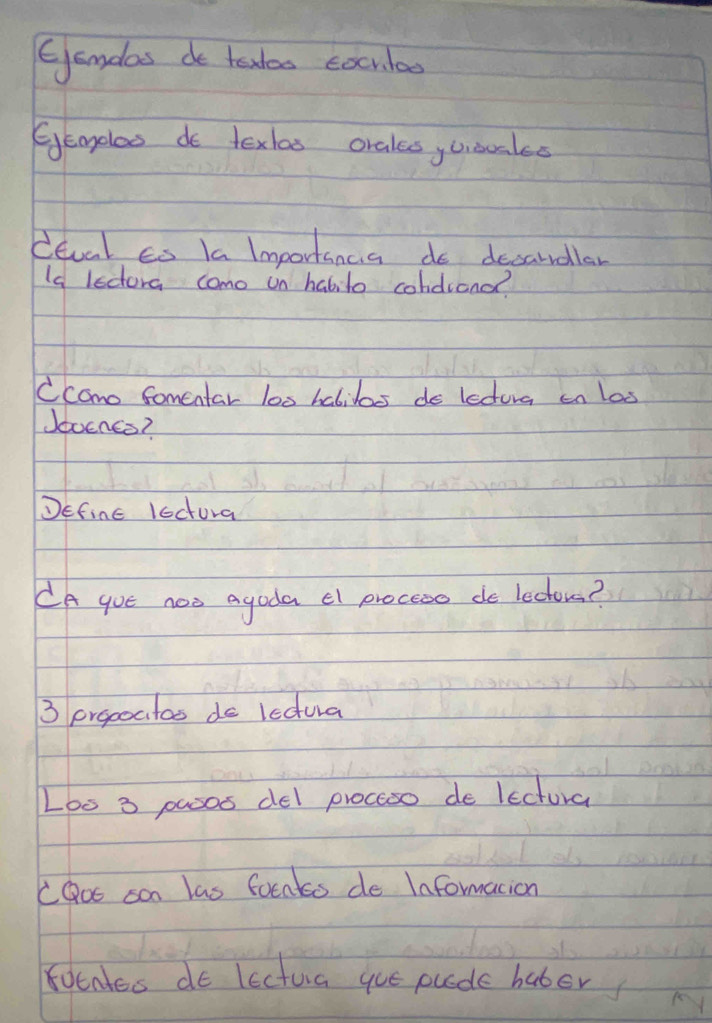 Ejemplos de textos escritos
Ejemplos de textos orales y visuales
¿Cual es la importancia de desarrollar
la lectura como un habito cotidiano?
¿como fomentar los habitos de lectura en los
Jovenes?
Define lectura
¿A que nos ayuda el proceso de lectura?
3 propocitos de lectura
Los 3 pasos del proceso de lectura
¿Que son las fuentes de Informacion
fuentes de lectura que puede haber